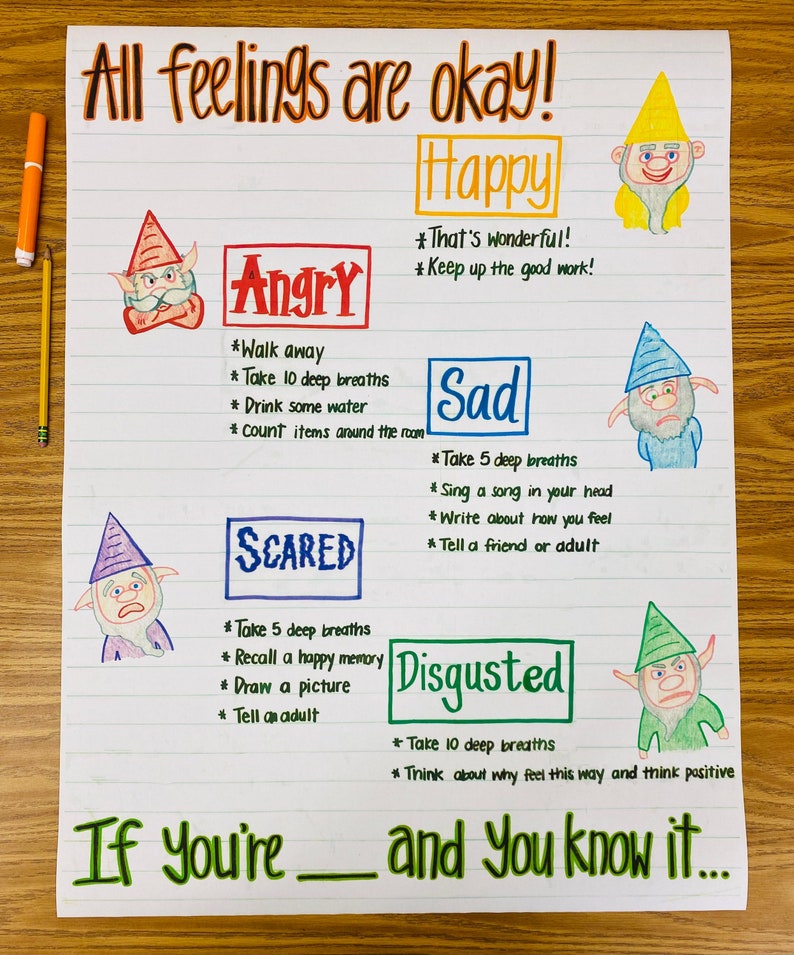 All feelings are okay!
Happy
*That's wonderful!
*Keep up the good work!
Angry
*Walk away
*Take 10 deep breaths
*Drink some water
*Count items around the room
Sad
*Take 5 deep breaths
*Sing a song in your head
*Write about how you feel
*Tell a friend or adult
Scared
*Take 5 deep breaths
*Recall a happy memory
*Draw a picture
*Tell an adult
Disgusted
*Take 10 deep breaths
*Think about why feel this way and think positive
If you're ___ and you know it...